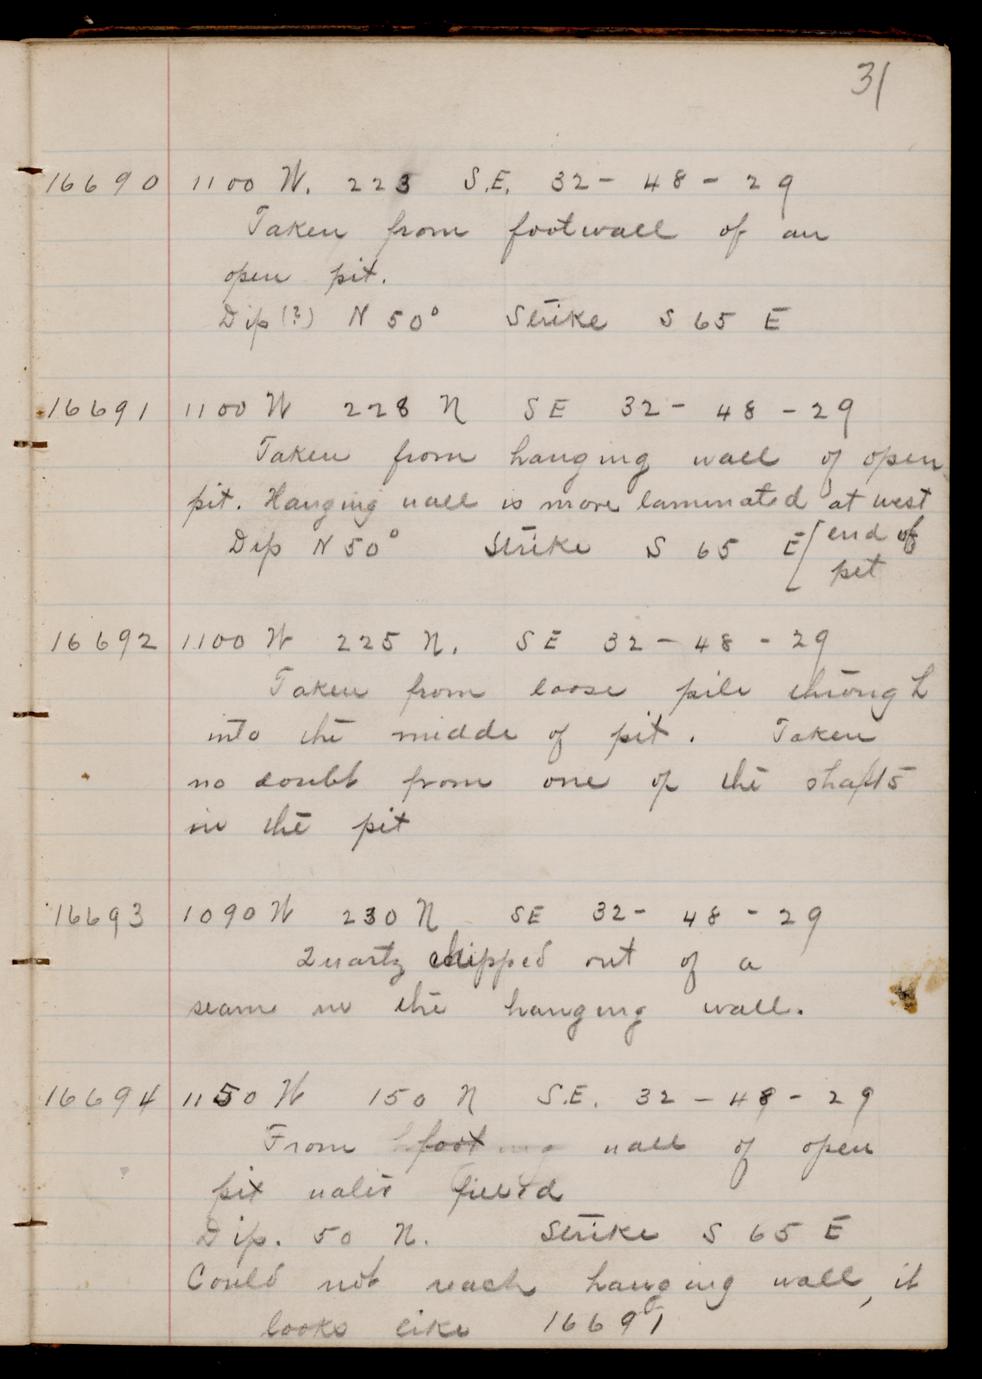 31
16690 1100 W. 223 S.E. 32-48-29
Taken from footwall of an
open pit.
Dip (?) N 50° Strike S 65 E
16691 1100 W 228 N SE 32-48-29
Taken from hanging wall of open
pit. Hanging wall is more laminated at west
Dip N 50° Strike S 65 E [end of
pit
16692 1100 W 225 N. SE 32-48-29
Taken from loose pile through
into the middle of pit. Taken
no doubt from one of the shafts
in the pit
16693 1090 W 230 N SE 32-48-29
Quartz chipped out of a
seam in the hanging wall.
16694 1150 W 150 N S.E. 32-48-29
From foot wall of open
pit water filled
Dip. 50 N. Strike S 65 E
Could not reach hanging wall, it
looks like 16691